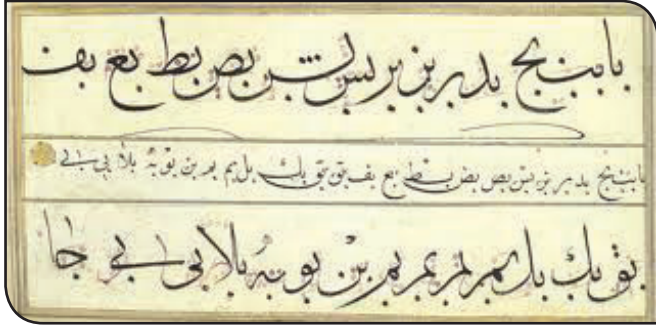 با بب بج بد بر بس بص بط بع بف
با بب بج بد بر بص بض بط بع بف بق بك بل بم بم بن بو به بلا بى بے
بق بك بل بم بم بم بم بن بو به بلا بى بے جا